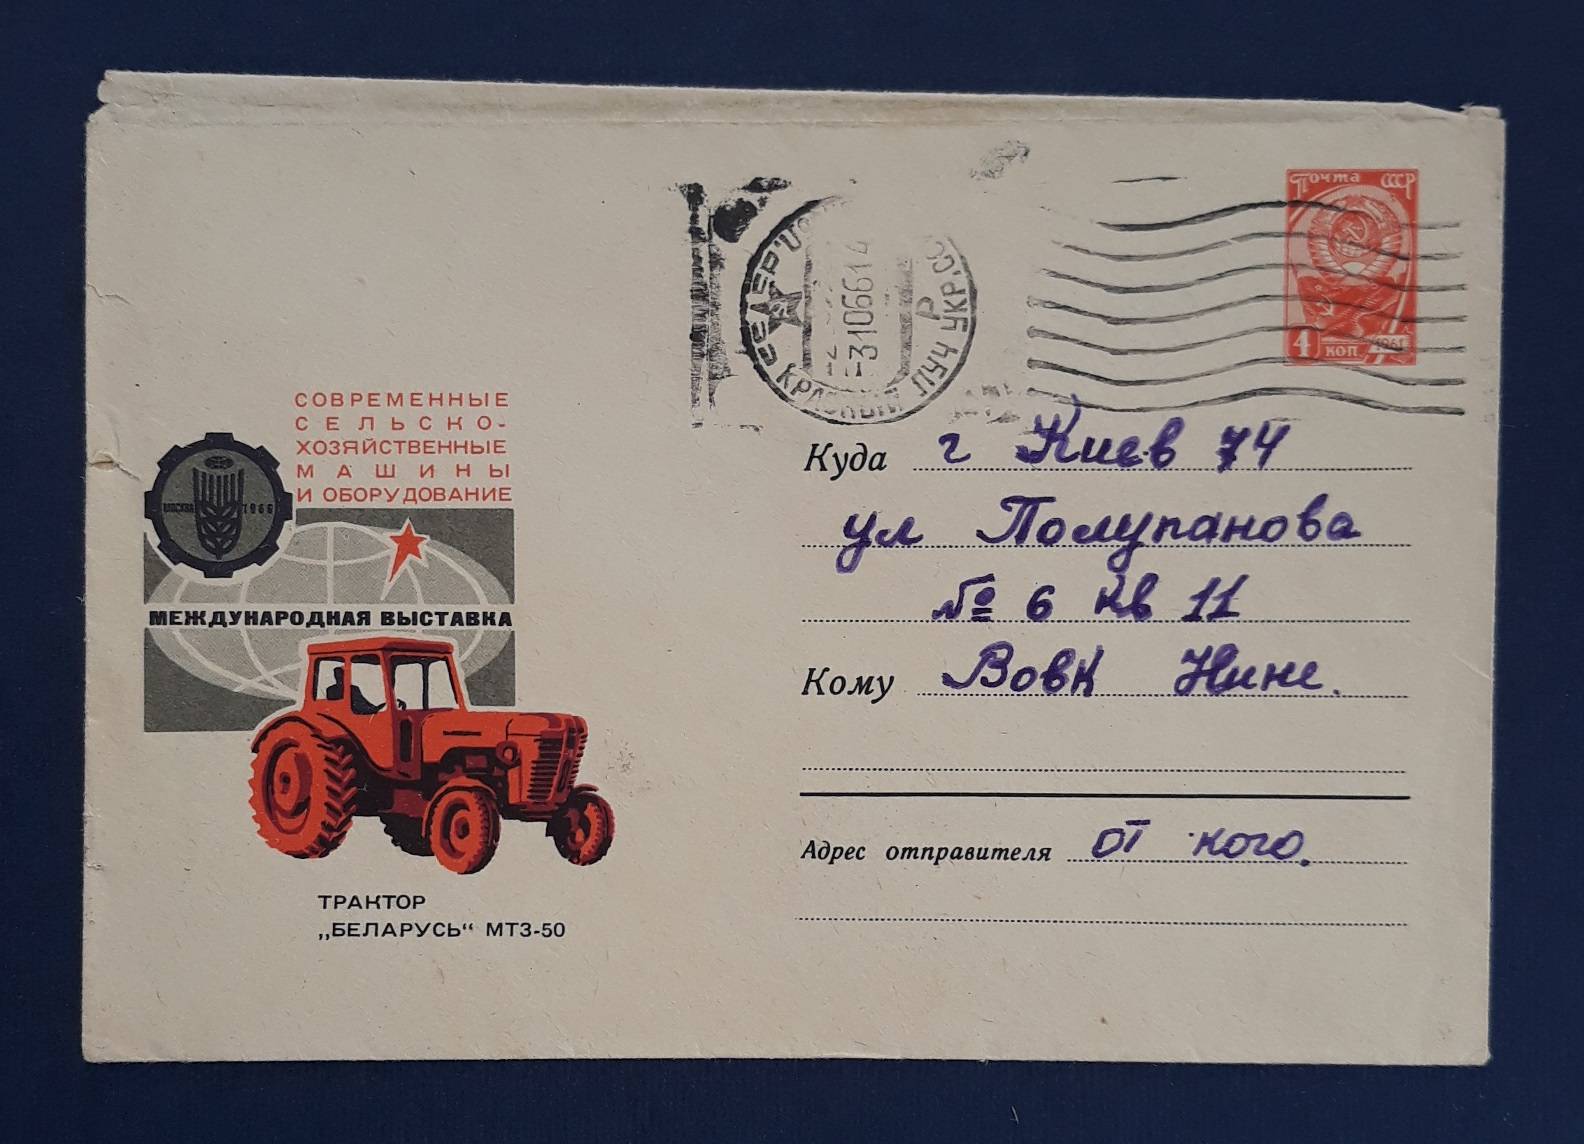 Почта СССР
4 коп
1961
-31066 14
Р
КРАСНЫЙ ЛУЧ УКР.
СОВРЕМЕННЫЕ
СЕЛЬСКО-
ХОЗЯЙСТВЕННЫЕ
МАШИНЫ
И ОБОРУДОВАНИЕ
МОСКВА 1966
МЕЖДУНАРОДНАЯ ВЫСТАВКА
ТРАКТОР
„БЕЛАРУСЬ“ МТЗ-50
Куда г Киев 74
ул Полупанова
№ 6 кв 11
Кому Вовк Нине.
Адрес отправителя от кого.